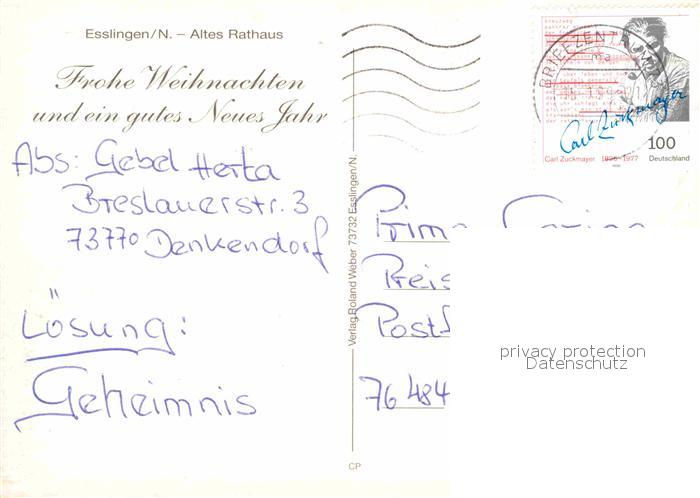 Esslingen/N. – Altes Rathaus
Frohe Weihnachten
und ein gutes Neues Jahr
Abs: Gebel Herta
Breslauerstr. 3
73770 Denkendorf
Lösung:
Geheimnis
Verlag Roland Weber 73732 Esslingen/N.
CP
BRIEFZEN
Carl Zuckmayer
100
Carl Zuckmayer 1896-1977 Deutschland
Preis
Postf
76 484
privacy protection
Datenschutz